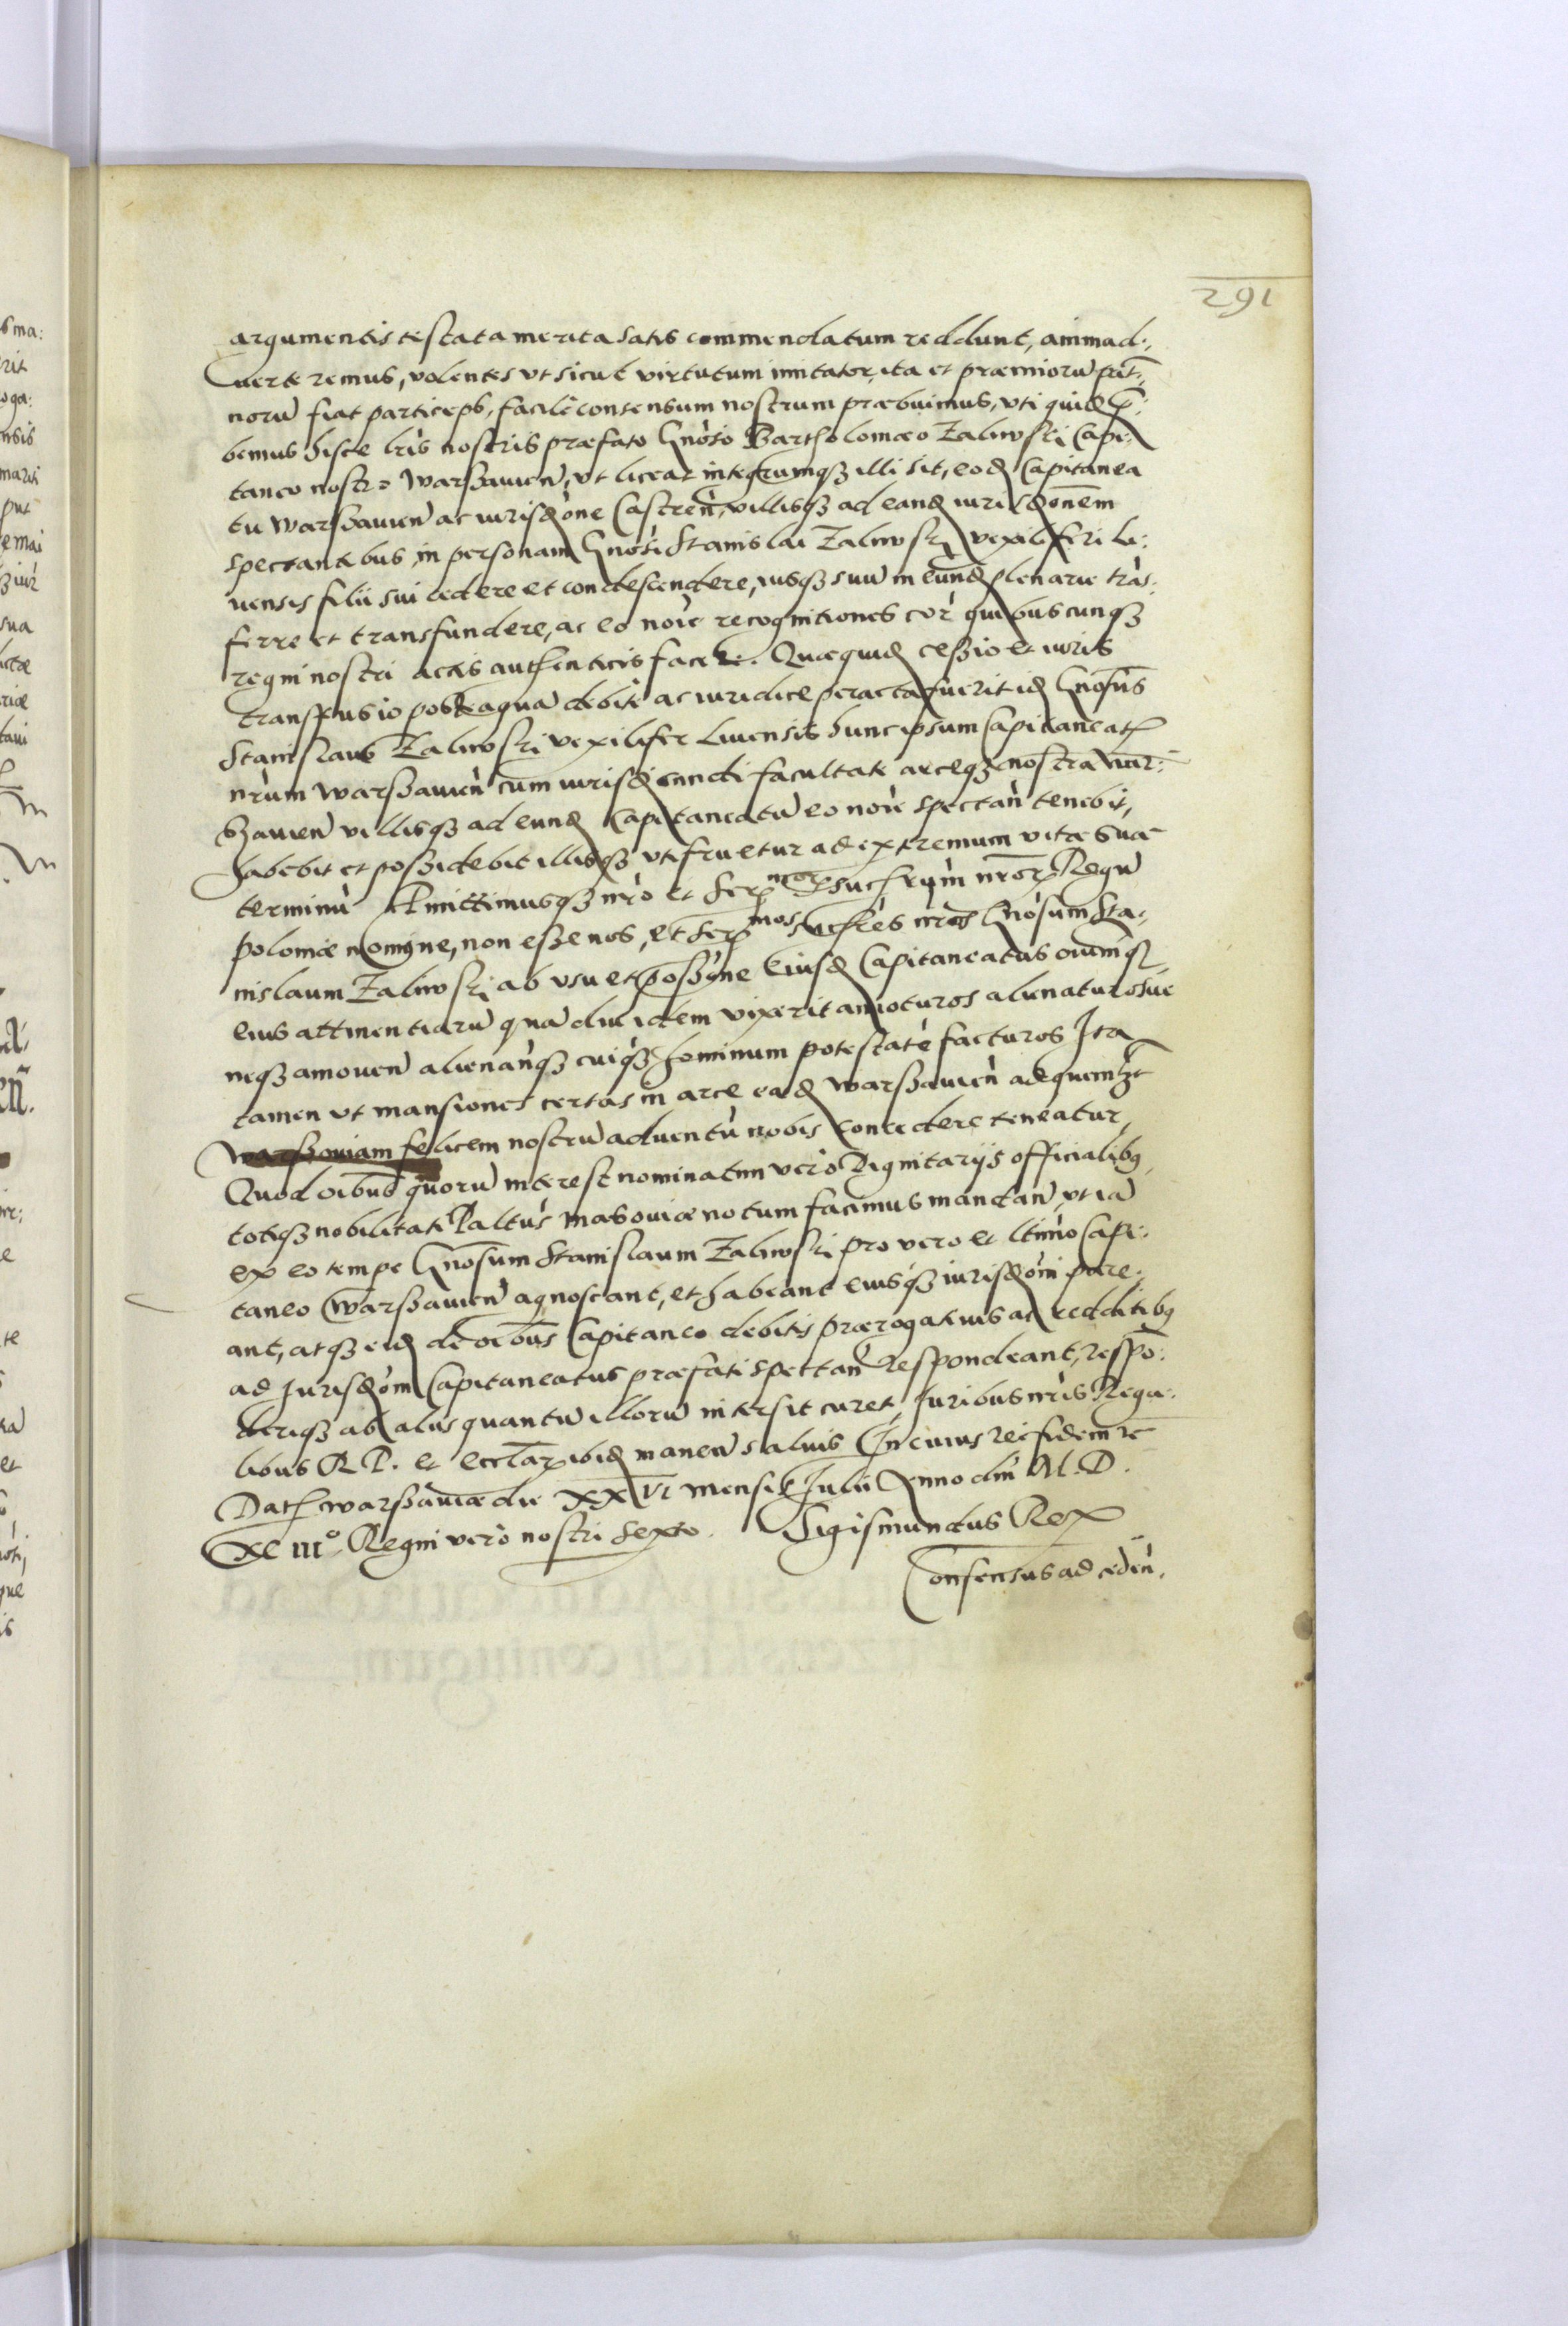 291
argumentis testata merita satis commendatum reddunt, animad:
uerteremus, volentes vt sicut virtutum imitator, ita et præmiorũ pat̃:
norũ fiat particeps, facilè consensum nostrum præbuimus, vti quidẽ p̃:
bemus hisce lr̃is nostris præfato Gnoso Bartholomæo Zaliwski Capi:
taneo nostro Warschauien̄, vt liceat integrumqȝ illi sit, eod̃ Capitanea
tu Warschauien̄ ac iurisd̃one Castren̄, villisqȝ ad eand̃ iurisd̃onem
spectantibus, in personam Gnosi Stanislai Zaliwski vexiliferi Li:
uensis filii sui cedere et condescendere, iusqȝ suũ in eund̃ plenarie trãs:
ferre et transfundere, ac eo noĩe recognitiones cor̃ quibuscunqȝ
regni nostri actis authenticis facere. Quæquid̃ cessio et iuris
transfusio posteaquã debitè ac iuridicè peracta fuerit id̃ Gnosus
Stanislaus Zaliwski vexilifer Liuensis hunc ipsum Capitaneatũ
nr̃um Warschauien̄ cum iurisd̃cundi facultate arceqȝ nostra War:
schauien̄ villisqȝ ad eund̃ Capitaneatũ eo noĩe spectañ tenebit,
habebit et possidebit illisqȝ vtifruetur ad extremum vitæ suæ
terminũ Pmittimusqȝ nr̃o et Ser̃ mor̃ Succr̃um nr̃or̃ Regũ
Poloniæ nomine, non esse nos, et Ser̃ mos Succr̃es nr̃os Gnosum Sta:
nislaum Zaliwski ab vsu et possõne eiusd̃ Capitaneatus omniũqȝ
eius attinentiarũ quã diu idem vixerit amoturos alienaturosue
neqȝ amouen̄ alienan̄qȝ cuiqȝ hominum potestatẽ facturos Ita
tamen vt mansiones certas in arce ead̃ Warschauien̄ ad quemlȝt
felicem nostrũ aduentũ nobis concedere teneatur,
Quod oĩbus quorũ interest nominatim verò Dignitarijs officialibȝ
totiqȝ nobilitati Pal̃tus Masouiæ notum facimus mandan̄, vt iã
ex eo tempe Gnosum Stanislaum Zaliwski pro vero et ltimo Capi:
taneo Warschauien̄ agnoscant, et habeant eiusqȝ iurisd̃oni pare:
ant, atqȝ eid̃ de oĩbus Capitaneo debitis prærogatiuis ac redditibȝ
ad Jurisd̃om Capitaneatus præfati spectan̄ respondeant, respõ:
deriqȝ ab aliis quantũ illorũ intersit curet, Juribus nr̃is Rega:
libus R P. et eccl̃ar̃ ibid̃ manen̄ saluis In cuius rei fidem rc̃
Dat̃ Warschauiæ die XXVI mensis Julii Anno dñi M.D.
XCIIIº. Regni verò nostri Sexto. Sigismundus Rex
Consensus ad ceden̄.